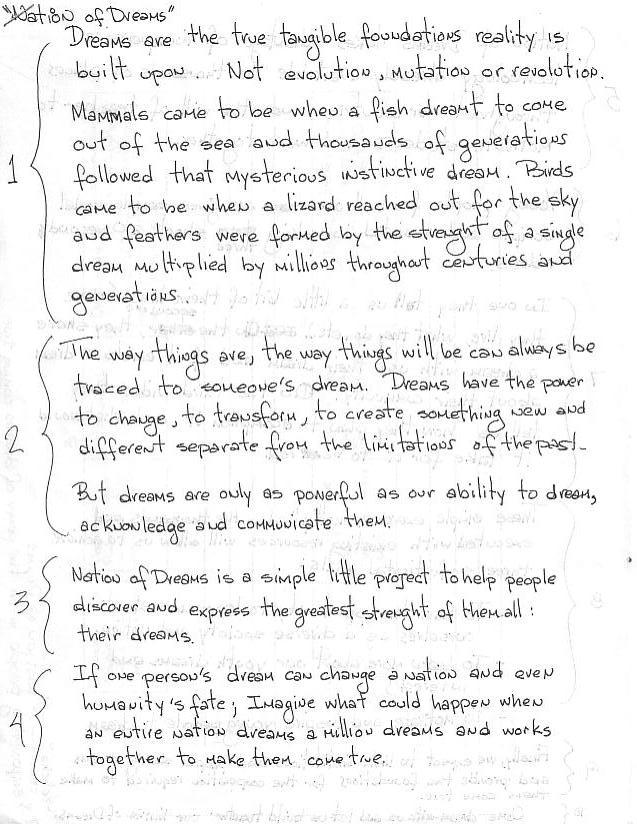 "Nation of Dreams"
Dreams are the true tangible foundations reality is
built upon. Not evolution, mutation or revolution.
Mammals came to be when a fish dreamt to come
out of the sea and thousands of generations
followed that mysterious instinctive dream. Birds
came to be when a lizard reached out for the sky
and feathers were formed by the strenght of a single
dream multiplied by millions throughout centuries and
generations.
1
The way things are, the way things will be can always be
traced to someone's dream. Dreams have the power
to change, to transform, to create something new and
different separate from the limitations of the past.
2
But dreams are only as powerful as our ability to dream,
acknowledge and communicate them.
Nation of Dreams is a simple little project to help people
3
discover and express the greatest strenght of them all:
their dreams.
If one person's dream can change a nation and even
humanity's fate; Imagine what could happen when
4
an entire nation dreams a million dreams and works
together to make them come true.